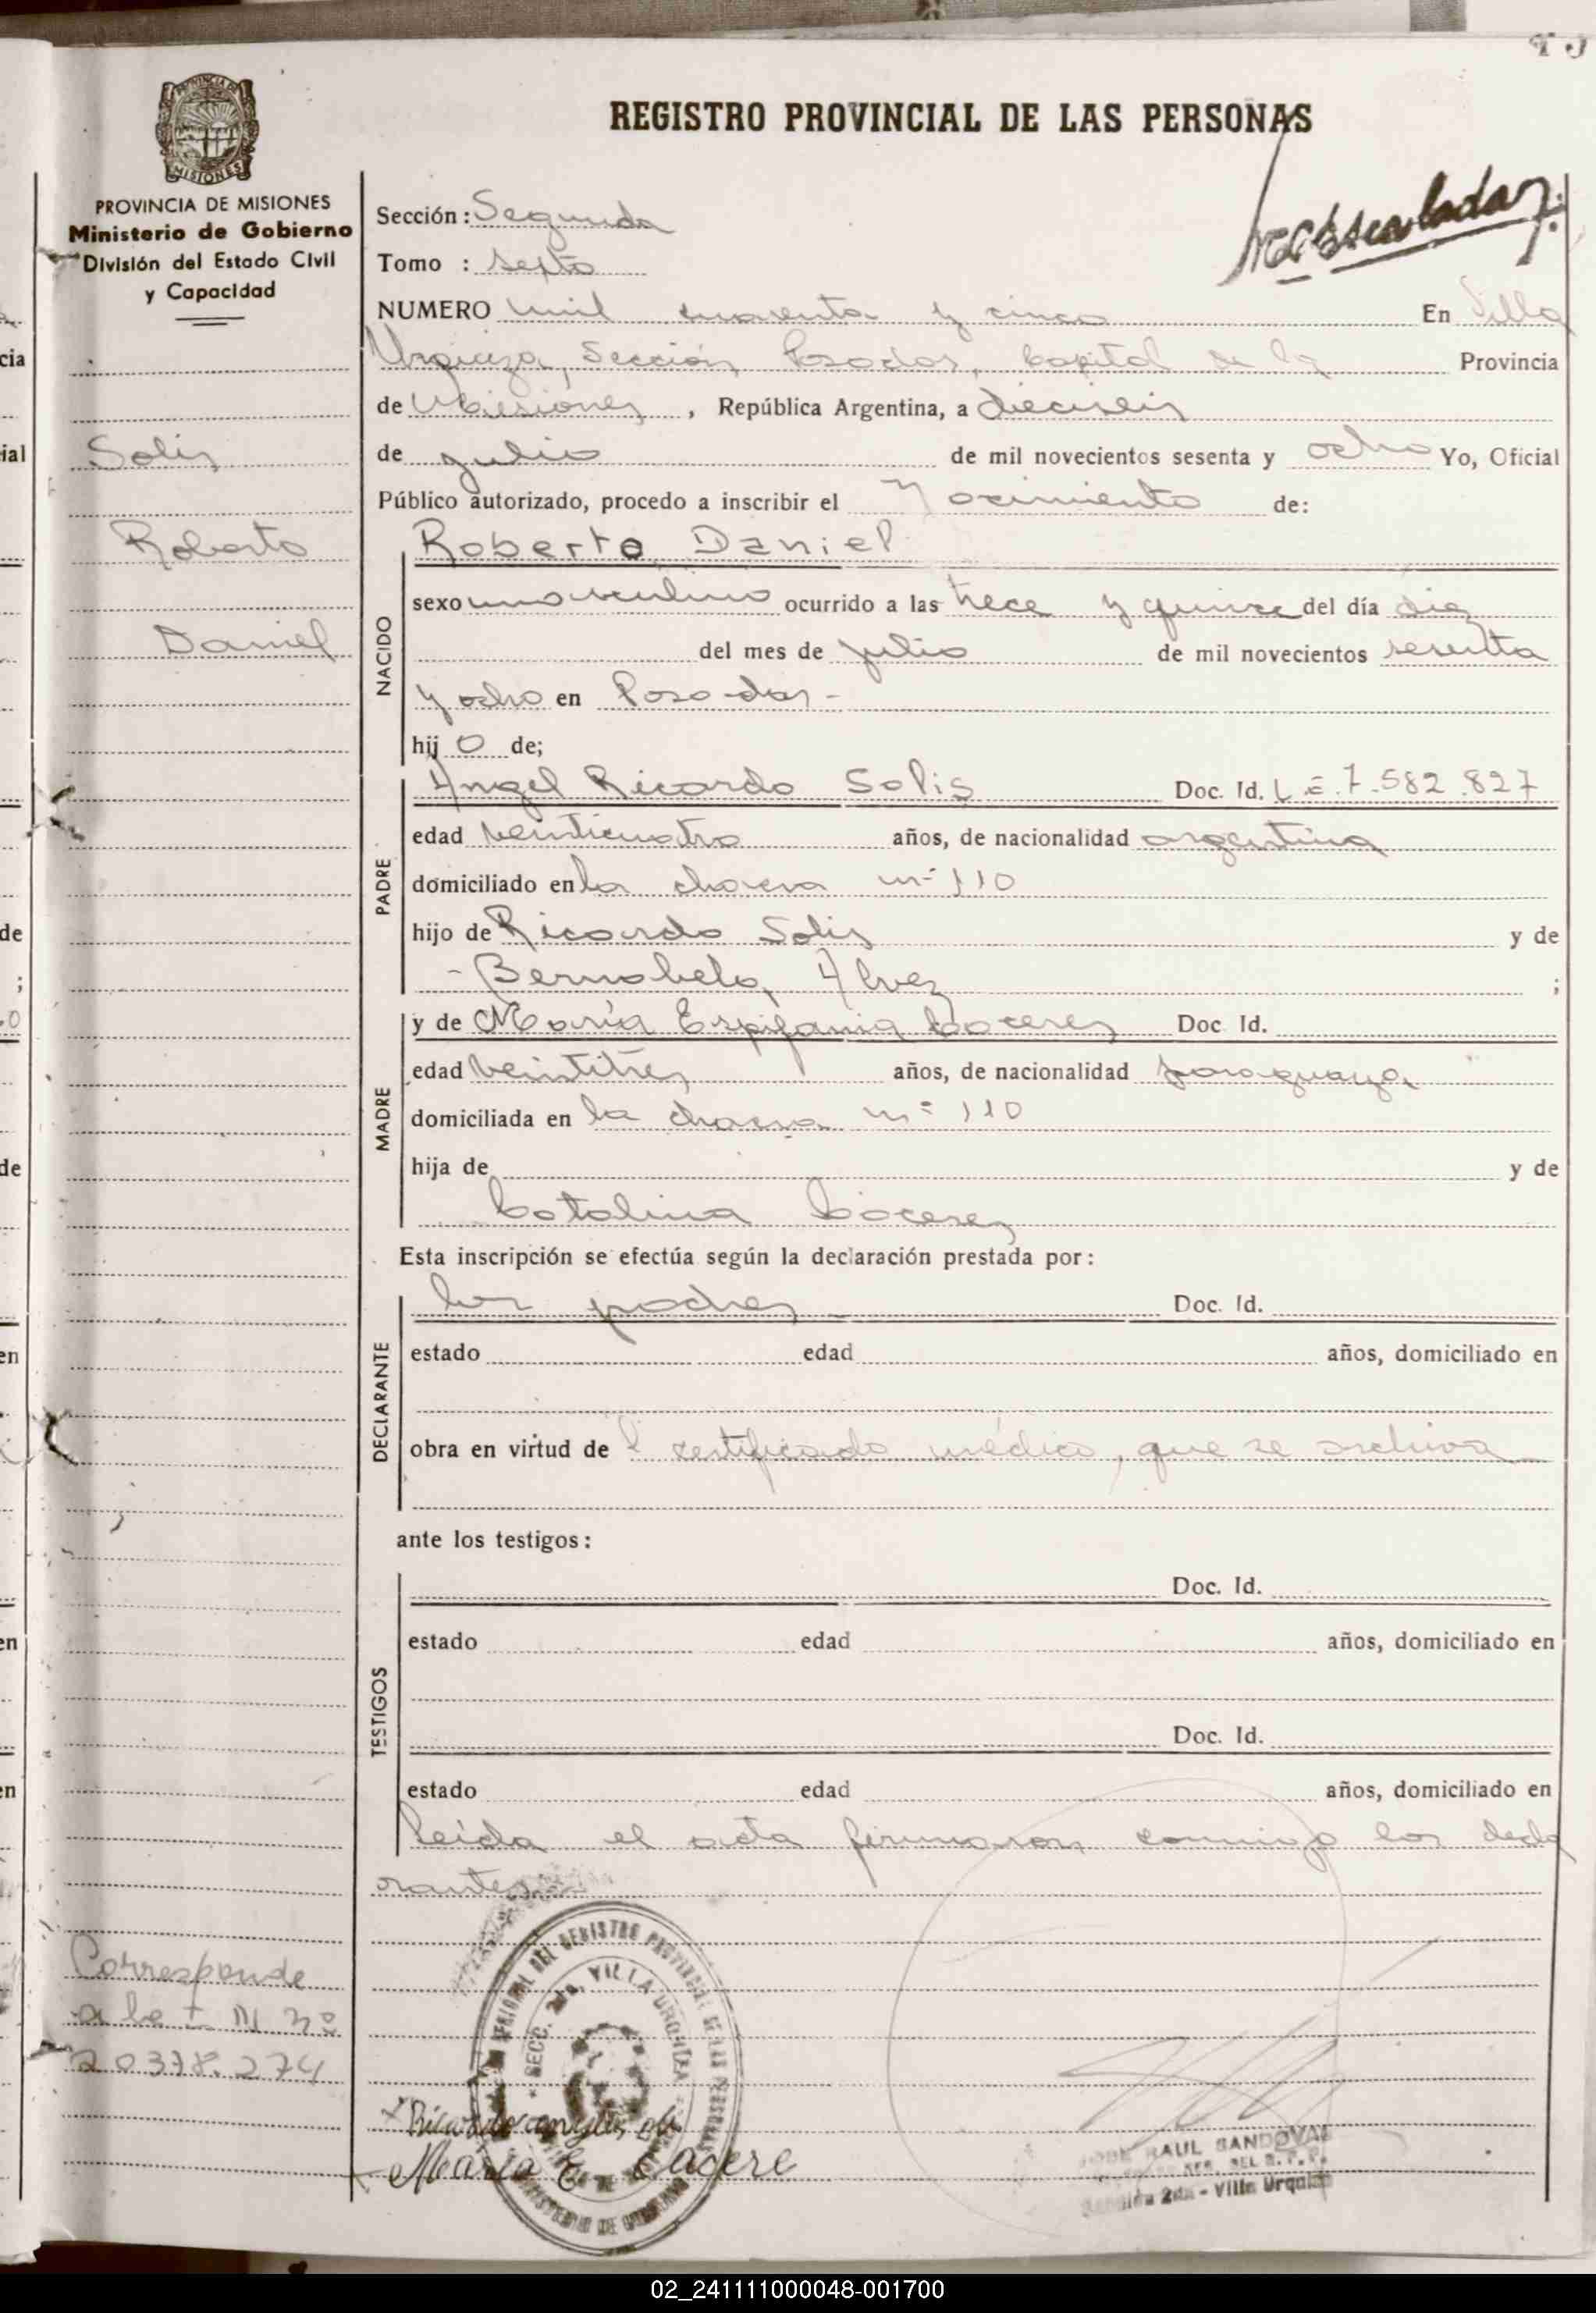 REGISTRO PROVINCIAL DE LAS PERSONAS
PROVINCIA DE MISIONES
Ministerio de Gobierno
División del Estado Civil
y Capacidad
Solis
Roberto
Daniel
Corresponde
20378.274
Sección: Segunda
Tomo : Septo
NUMERO mil cuarenta y cinco En Villa
Urquiza, Sección Posadas, Capital de la Provincia
de Misiones, República Argentina, a dieciseis
de julio de mil novecientos sesenta y ocho Yo, Oficial
Público autorizado, procedo a inscribir el Nacimiento de:
Roberto Daniel
NACIDO
sexo masculino ocurrido a las trece y quince del día diez
del mes de julio de mil novecientos sesenta
y ocho en Posadas -
hijo de;
PADRE
Angel Ricardo Solis Doc. Id. L.E. 7.582.827
edad veinticuatro años, de nacionalidad argentina
domiciliado en la chacra nº 110
hijo de Ricardo Solis y de
- Bernabela Alvez ;
MADRE
y de María Espifania Caceres Doc Id.
edad veintitres años, de nacionalidad paraguaya
domiciliada en la chacra nº 110
hija de y de
Catalina Cáceres
Esta inscripción se efectúa según la declaración prestada por:
DECLARANTE
los padres Doc. Id.
estado edad años, domiciliado en
obra en virtud del certificado médico, que se archiva
ante los testigos:
TESTIGOS
Doc. Id.
estado edad años, domiciliado en
Doc. Id.
estado edad años, domiciliado en
Leida el acta firmaron conmigo los decla
rantes
SECC. 2da. VILLA URQUIZA
María E Cacere
JOSE RAUL SANDOVAL
Sección 2da - Villa Urquiza
02_241111000048-001700